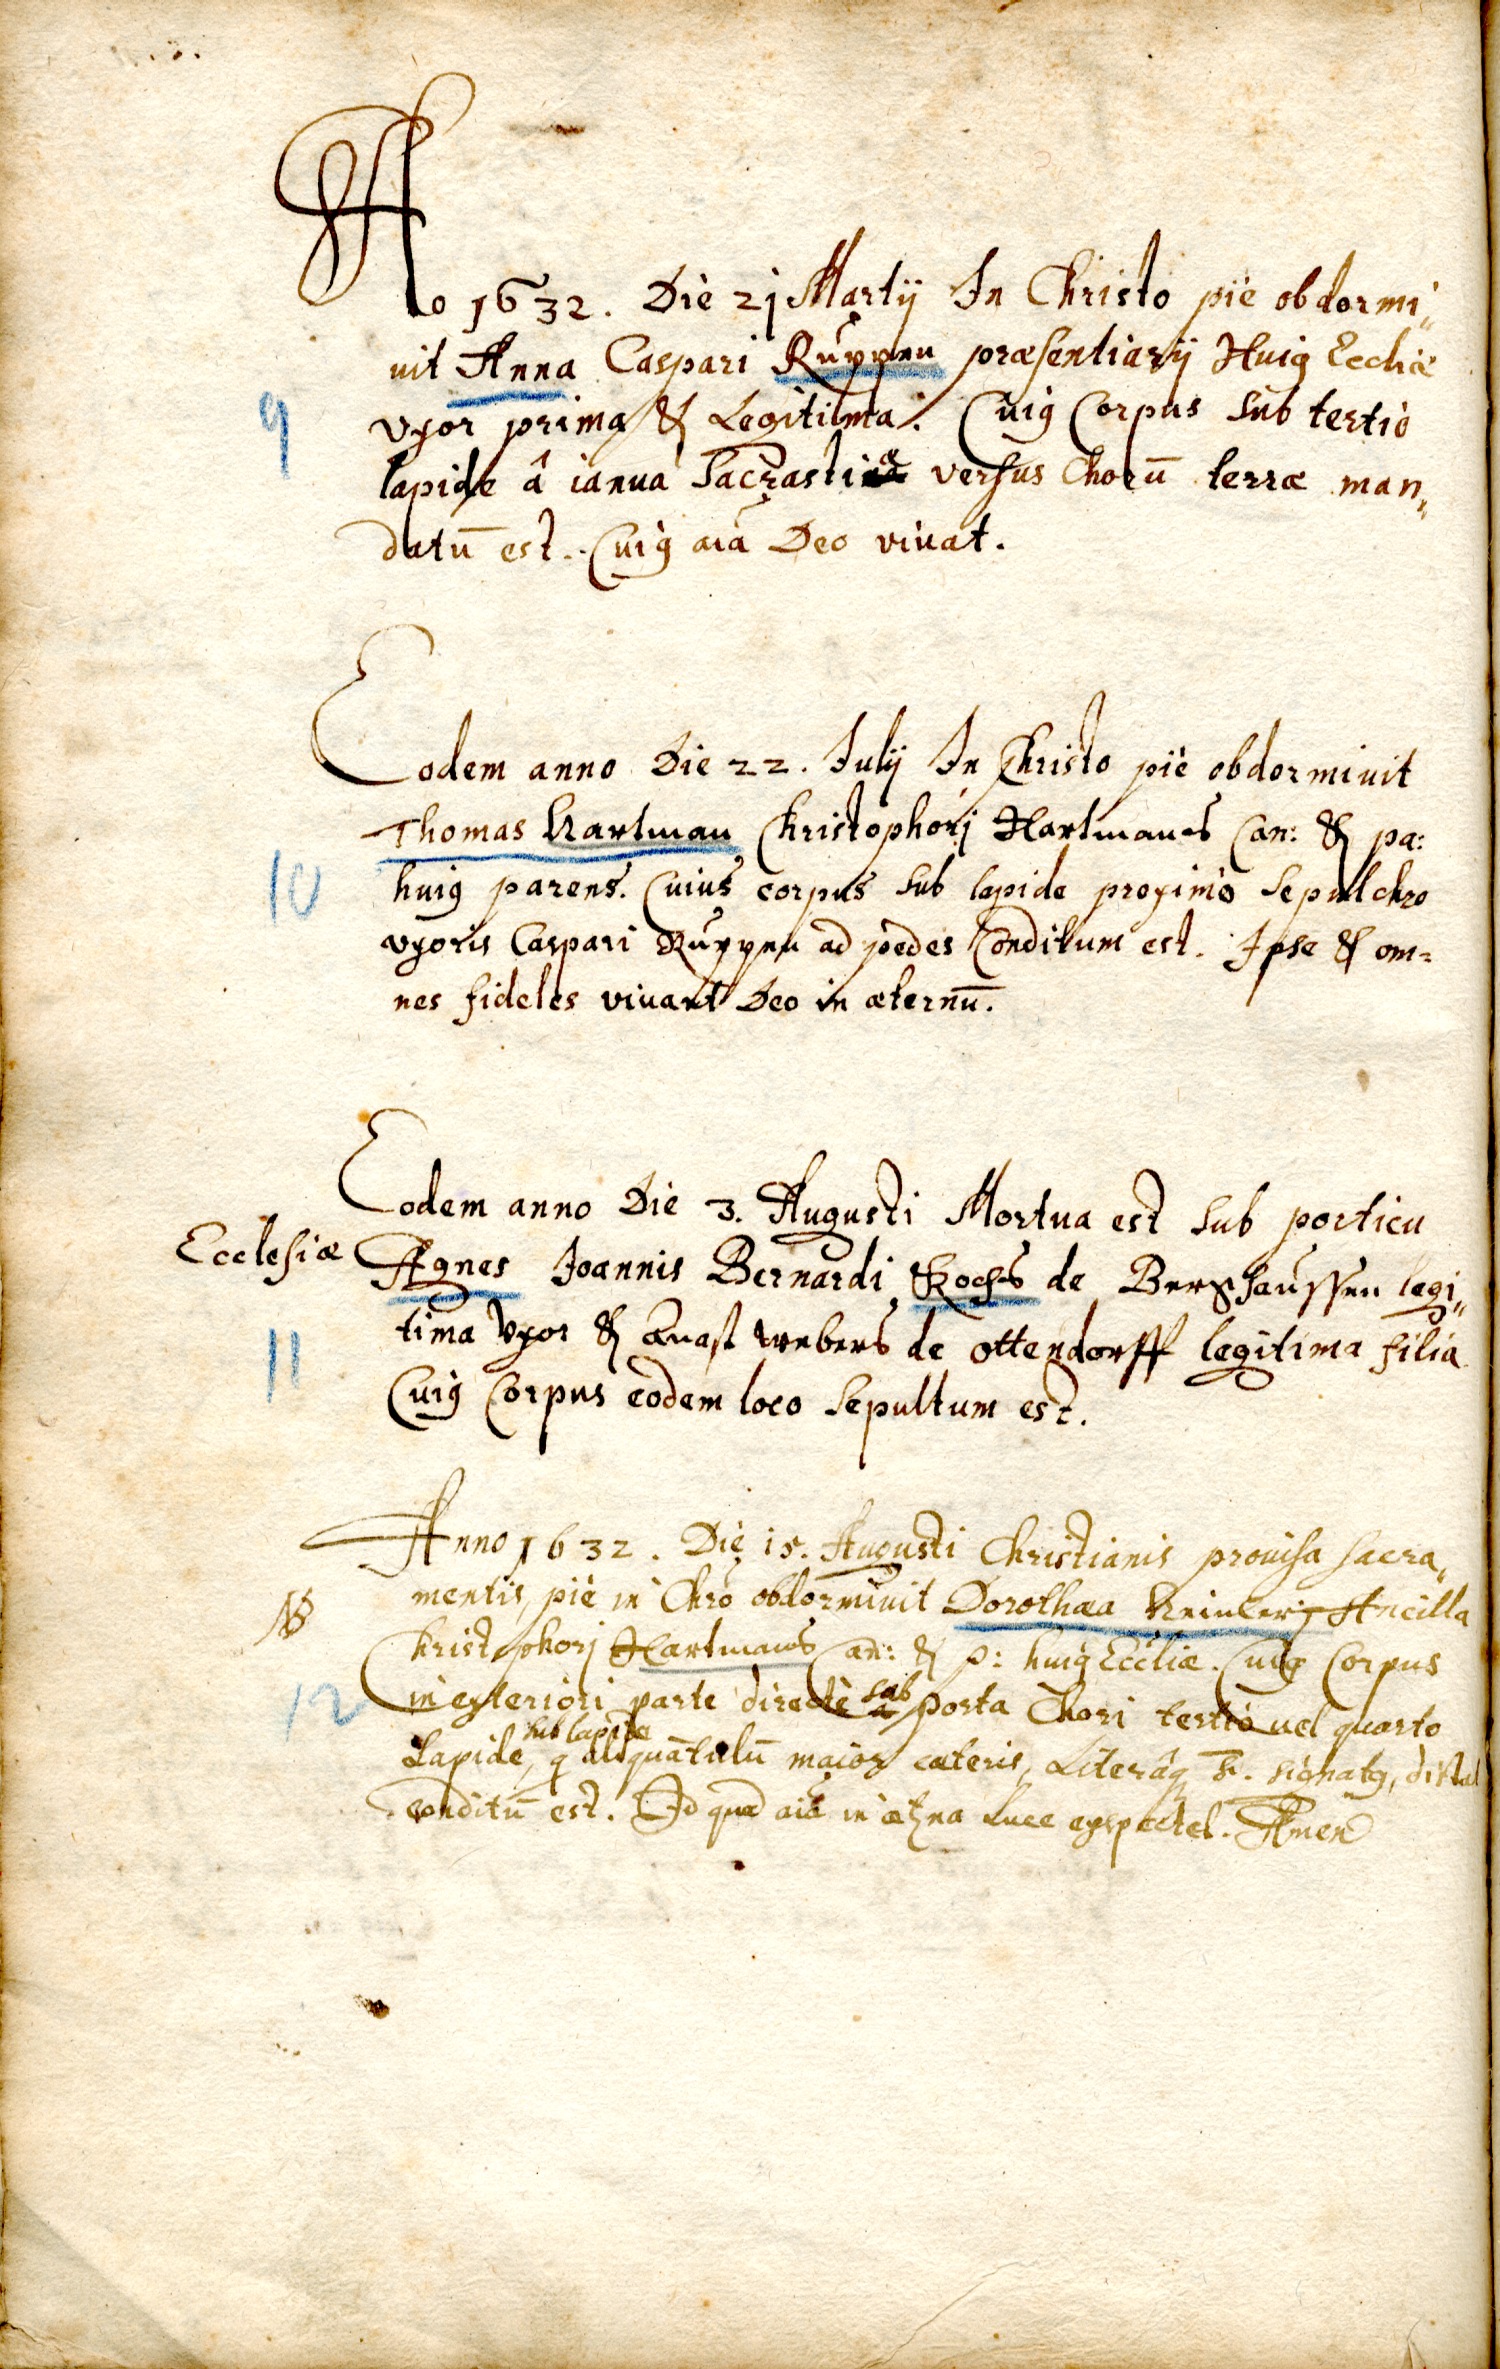 Ao 1632. Die 21 Martij In Christo piè obdormi„
uit Anna Caspari Ruppen præsentiarij Huiꝯ Eccliæ
9
vxor prima & Legitima. Cuiꝯ Corpus sub tertio
lapide â ianua Sacrastiæ versus Chorū terræ man„
datū est. Cuiꝯ aīa Deo viuat.
Eodem anno Die 22. Julij In Christo piè obdormiuit
Thomas Hartman Christophorj Hartmans Can: & pa:
10
huiꝯ parens. Cuius corpus sub lapide proximo sepulchro
vxoris Caspari Ruppen ad pedes Conditum est. Ipse & om=
nes fideles viuant Deo in æternū.
Eodem anno Die 3. Augusti Mortua est sub porticu
Ecclesiæ Agnes Joannis Bernardi Kochs de Bergshaussen legi„
11
tima Vxor & webers de ottendorff legitima filia
Cuiꝯ Corpus eodem loco sepultum est.
Anno 1632. Die 15. Augusti Christianis prouisa sacra„
mentis, piè in Chrō obdormiuit Dorothæa Ancilla
NB
Christophorj Hartmans Can: & p: huiꝯ Eccliæ. Cuiꝯ Corpus
12
in exteriori parte directè sub porta Chori tertio uel quarto
sub lapide
Lapide, q aliquātulū maior cæteris, Literaꝗ signatꝯ,
conditū est. Id quod aīa in ætna Luce exspectet. Amen